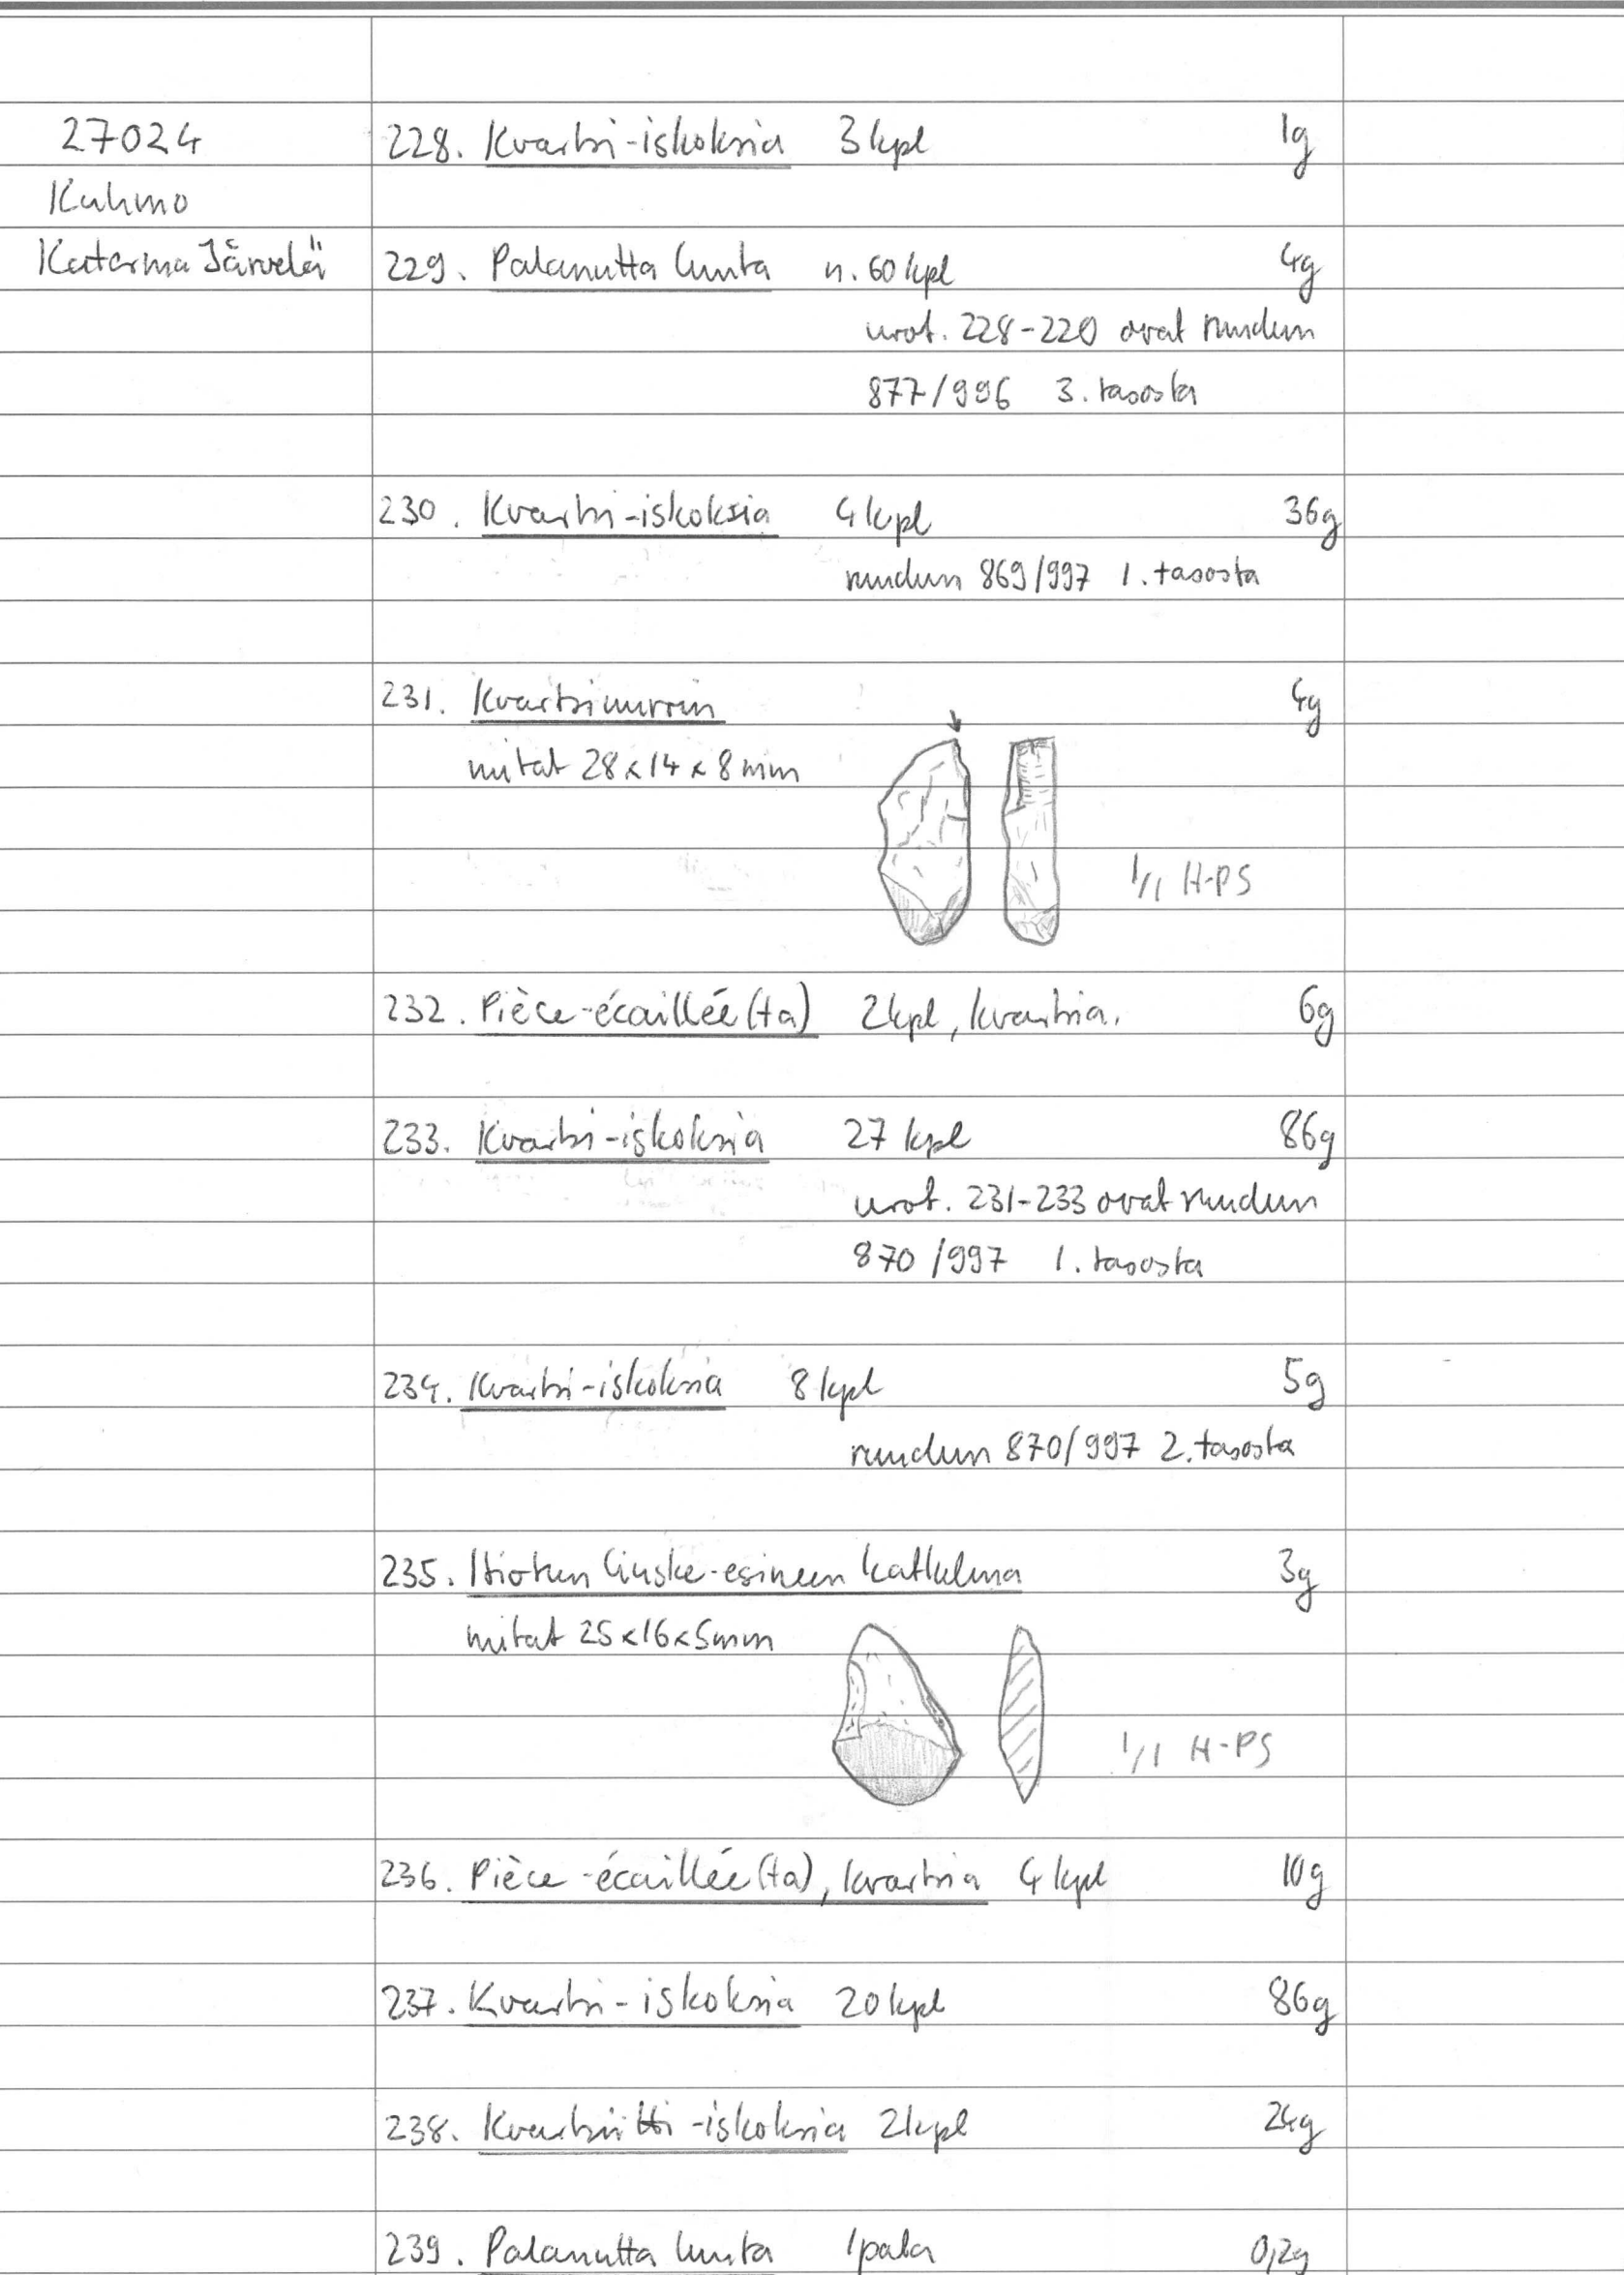 27024
Kuhmo
Katerma Järvelä
228. Kvartsi-iskoksia 3 kpl 1g
229. Palanutta luuta n. 60 kpl 4g
nrot. 228-220 ovat ruudun
877/996 3. tasosta
230. Kvartsi-iskoksia 4 kpl 36g
ruudun 869/997 1. tasosta
231. Kvartsiuurrin 4g
mitat 28x14x8mm
1/1 H-PS
232. Pièce-écaillée(ta) 2kpl, kvartsia. 6g
233. Kvartsi-iskoksia 27 kpl 86g
nrot. 231-233 ovat ruudun
870/997 1. tasosta
234. Kvartsi-iskoksia 8 kpl 5g
ruudun 870/997 2. tasosta
235. Hiotun liuske-esineen katkelma 3g
mitat 25x16x5mm
1/1 H-PS
236. Pièce-écaillée(ta), kvartsia 4 kpl 10g
237. Kvartsi-iskoksia 20 kpl 86g
238. Kvartsiitti-iskoksia 2kpl 24g
239. Palanutta luuta 1 pala 0,2g